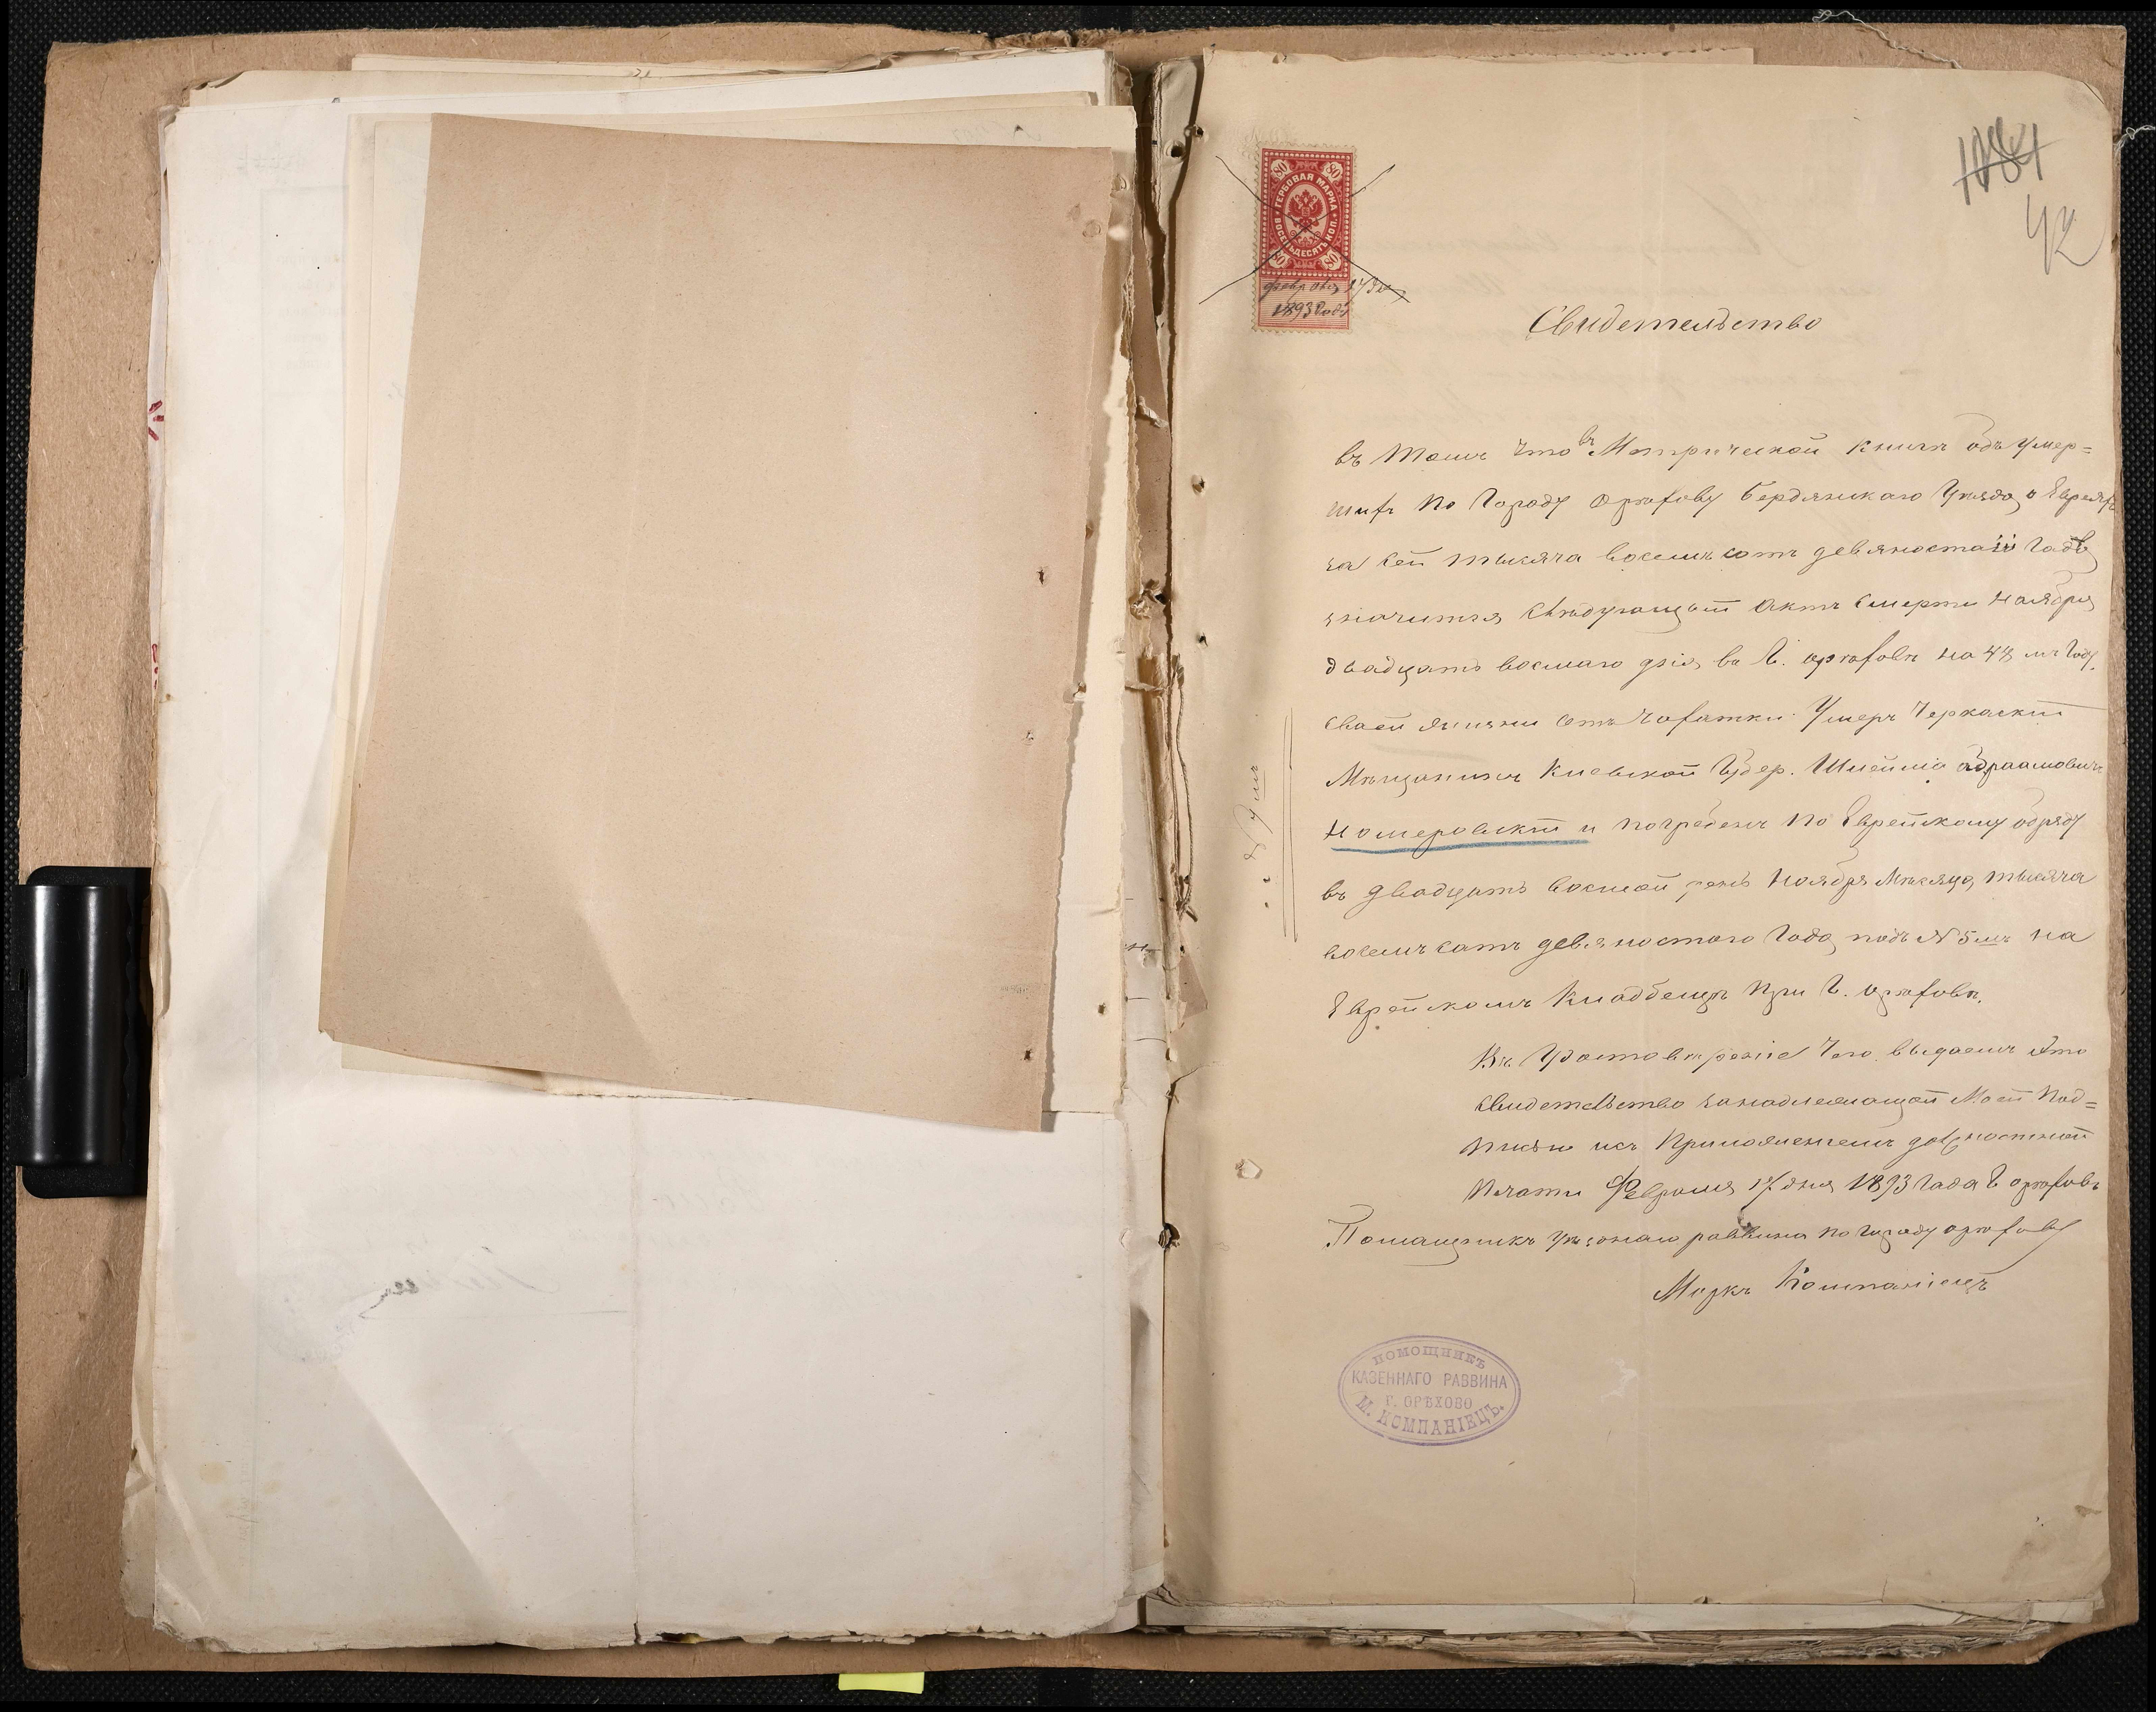 1081
42
80 80
ГЕРБОВАЯ МАРКА
ВОСЕМЬДЕСЯТЪ КОП.
80 80
февраля 17 дня
1893 года
Свидетельство
въ томъ что въ Метрической книгѣ объ умер=
шихъ по Городу Орѣхову Бердянскаго Уѣзда о Евреяхъ
за сей тысяча восемь сотъ девяностый годъ
значится слѣдующій актъ смерти Ноября
двадцать восмаго дня въ Г. орѣховѣ на 48 мъ году
своей жизни отъ чахатки Умеръ Черкаскій
Мѣщанинъ Киевской Губер. Шлейма абраамовичъ
Комеровскій и погребенъ по Еврейскому обряду
въ двадцать восмой день Ноября Мѣсяца тысяча
восемь сотъ девяностого года подъ № 5 мъ на
Еврейскомъ Кладбещѣ при Г. орѣховѣ.
Въ Удостовѣреніе чего выдаемъ это
свидетельство занадлежащей Моей под=
писью исъ Приложениемъ должностной
Печати Февраля 17 дня 1893 года Г орѣховъ
Помащникъ раввина по городу орѣхову
Маркъ Компаніецъ
ПОМОЩНИКЪ
КАЗЕННАГО РАВВИНА
Г. ОРѢХОВО
М. КОМПАНІЕЦЪ.